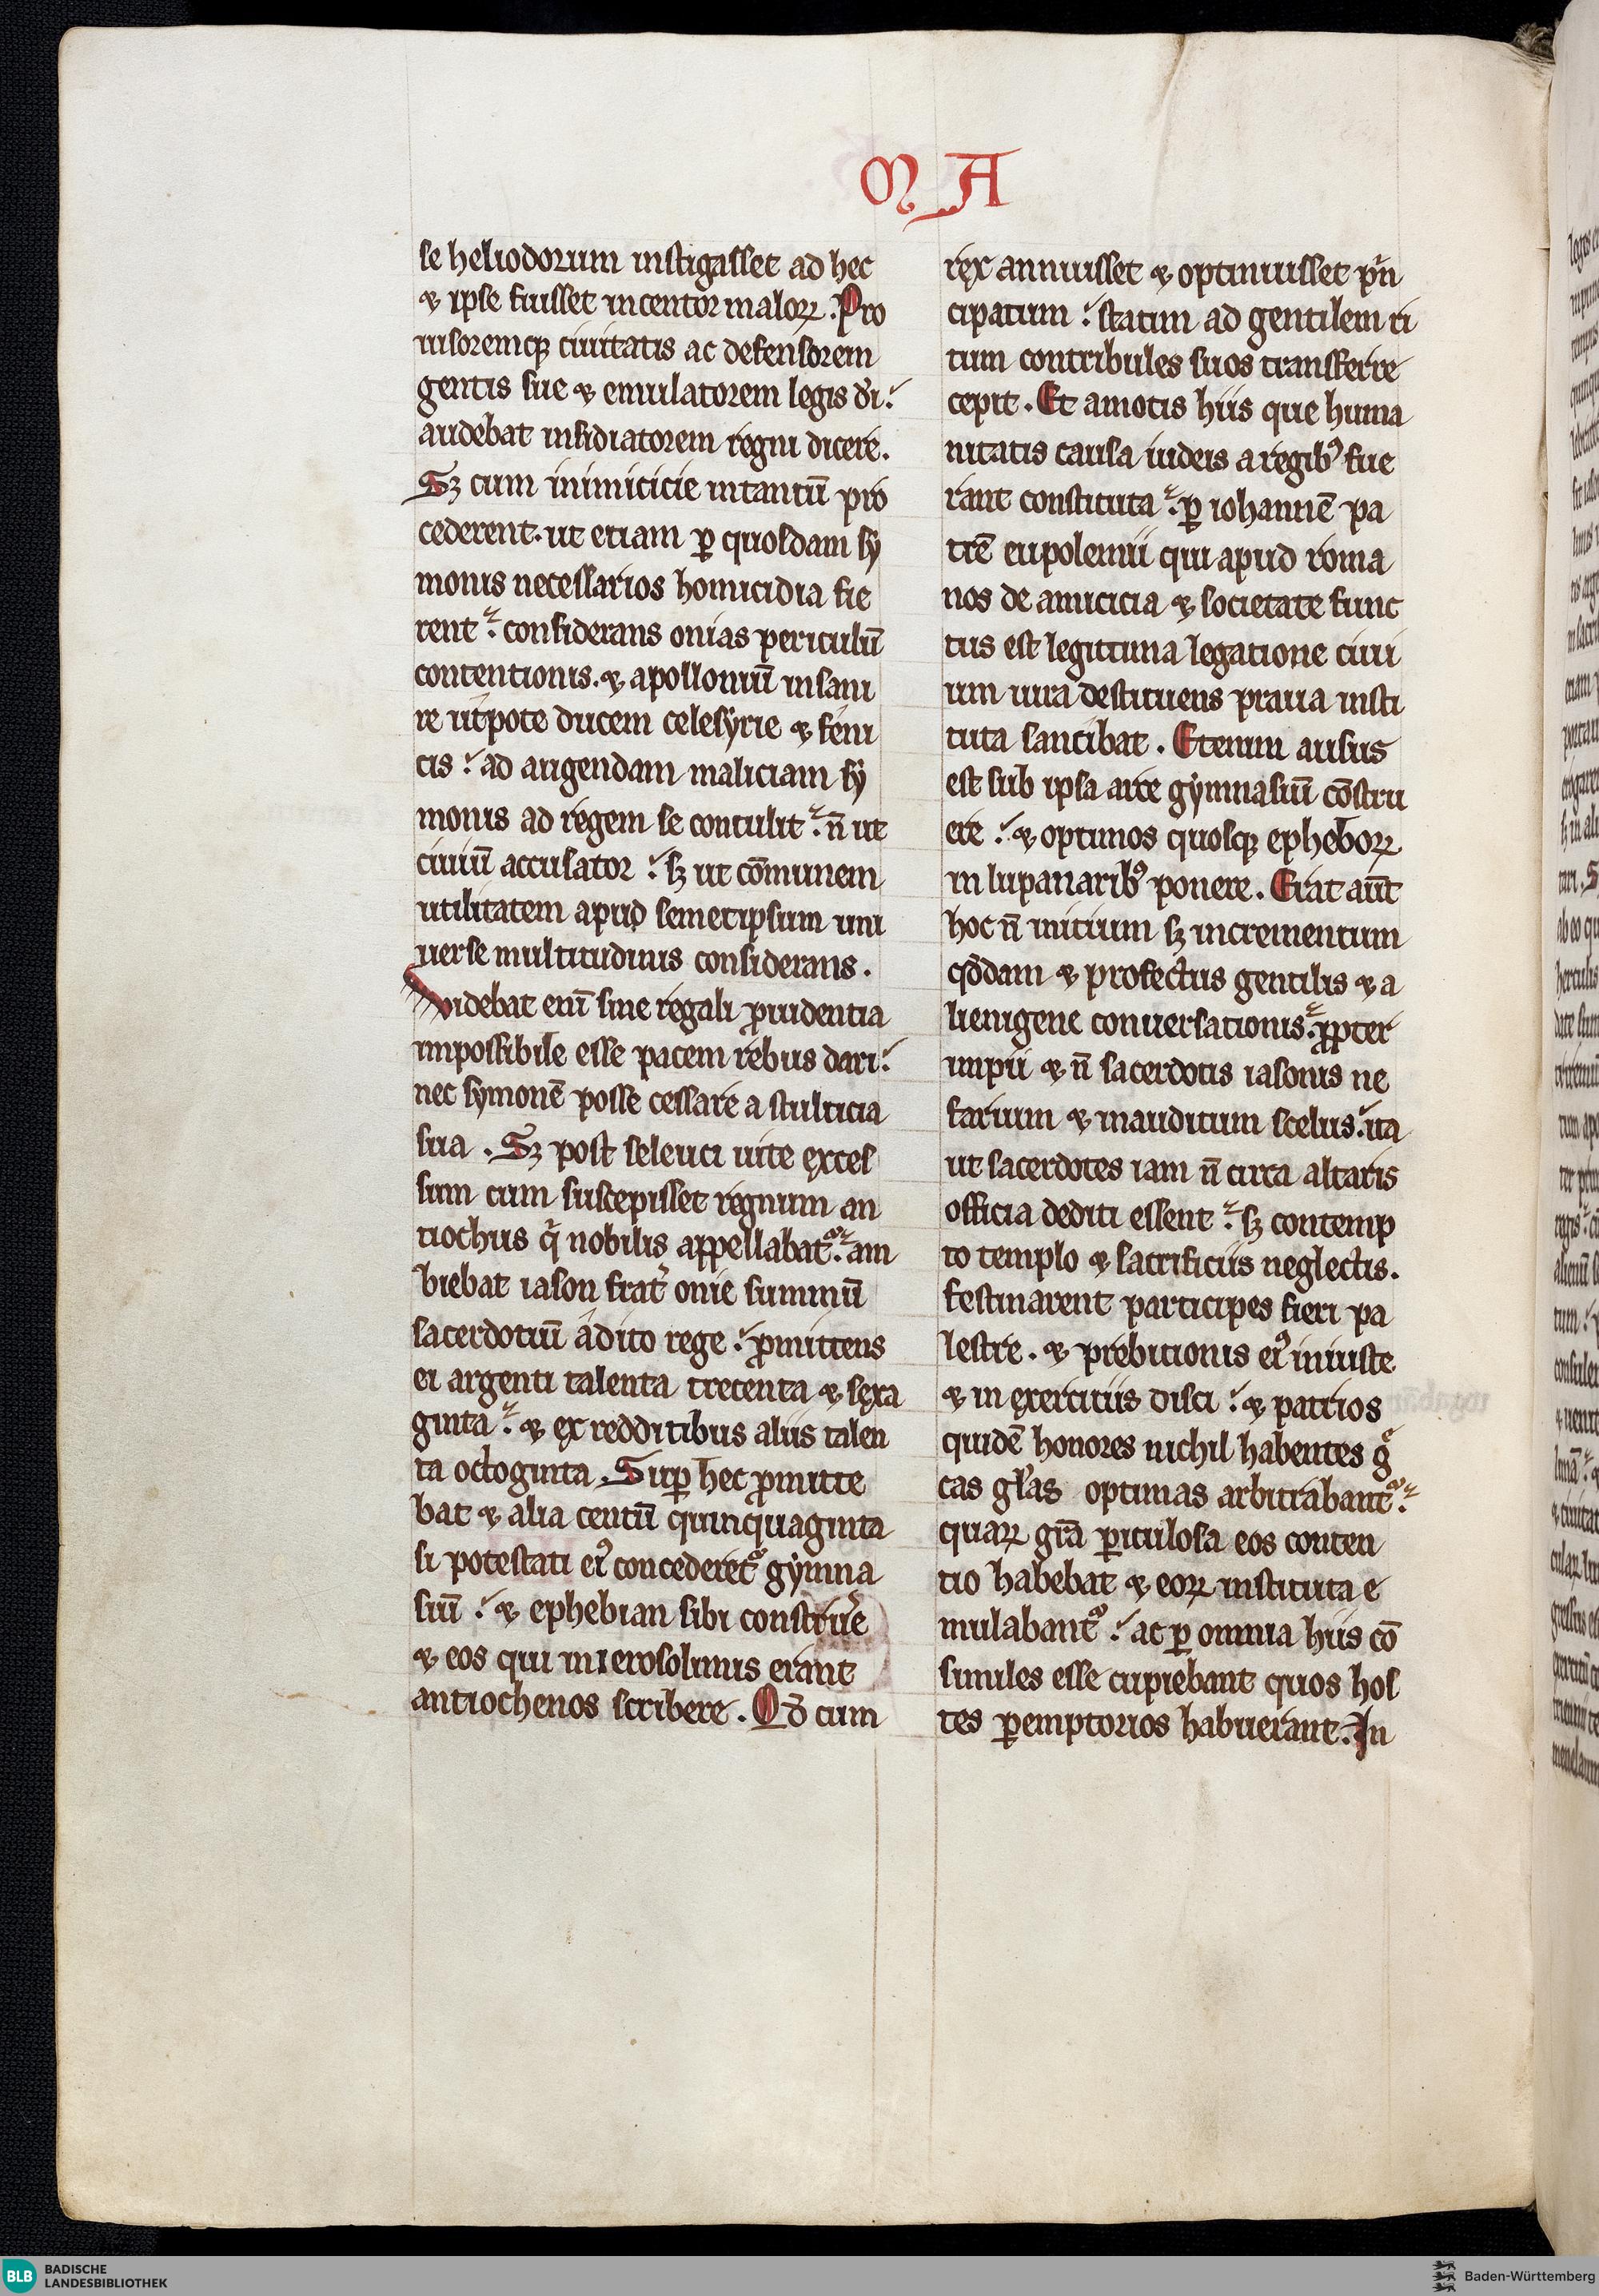 M A
se heliodorum instigasset ad hec
⁊ ipse fuisset incentor maloꝝ. Pro
uisoremqꝫ ciuitatis ac defensorem
gentis sue ⁊ emulatorem legis dı̄
audebat insidiatorem regni dicere.
Sꝫ cum inimicicie intantū pro
cederent. ut etiam ꝑ quosdam sẏ
monis necessarios homicidia fie
rent. considerans onias periculū
contentionis. ⁊ apolloniū insani
re utpote ducem celesẏrie ⁊ feni
cis. ad augendam maliciam sẏ
monis ad regem se contulit. n̄ ut
ciuiū accusator. sꝫ ut cōmunem
utilitatem apud semetipsum uni
uerse multitudinis considerans.
Videbat enī sine regali ꝓuidentia
impossibile esse pacem rebus dari.
nec sẏmonē posse cessare a stulticia
sua. Sꝫ post seleuci uite exces
sum cum suscepisset regnum an
tiochus qͥ nobilis appellabat᷑. am
biebat iason frat̾ onie summū
sacerdotiū adito rege. ꝓmittens
ei argenti talenta trecenta ⁊ sexa
ginta. ⁊ ex redditibus aliis talen
ta octoginta. Suꝑ hec ꝓmitte
bat ⁊ alia centū quinquaginta
si potestati eiꝰ concederet᷑ gẏmna
siū. ⁊ ephebian sibi construe̾
⁊ eos qui in ierosolimis erant
antiochenos scribere. Qd̄ cum
rex annuisset ⁊ optinuisset pͥn
cipatum. statim ad gentilem ri
tum contribules suos transferre
cepit. Et amotis hiis que huma
nitatis causa iudeis a regibꝰ fue
rant constituta. ꝑ iohannē pa
trē eupolemii qui apud roma
nos de amicicia ⁊ societate func
tus est legitima legatione ciui
um iura destituens praua insti
tuta sancibat. Etenim ausus
est sub ipsa arce gẏmnasiū cōstru
ere. ⁊ optimos quosqꝫ epheboꝝ
in lupanaribꝰ ponere. Erat aūt
hoc n̄ initium sꝫ incrementum
qd̄dam ⁊ profectus gentilis ⁊ a
lienigene conuersationis. ꝓpter
impii ⁊ n̄ sacerdotis iasonis ne
farium ⁊ inauditum scelus. ita
ut sacerdotes iam n̄ circa altaris
officia dediti essent. sꝫ contemp
to templo ⁊ sacrificiis neglectis.
festinarent participes fieri pa
lestre. ⁊ prebitionis eiꝰ iniuste
⁊ in exercitiis disci. ⁊ patrios
quidē honores nichil habentes gͤ
cas gl̄as optimas arbitrabant᷑.
quaꝝ grā ꝑiculosa eos conten
tio habebat ⁊ eoꝝ instituta e
mulabant᷑. ac ꝑ omnia hiis cō
similes esse cupiebant quos hos
tes ꝑemptorios habuerant. In
BLB BADISCHE
LANDESBIBLIOTHEK
Baden-Württemberg